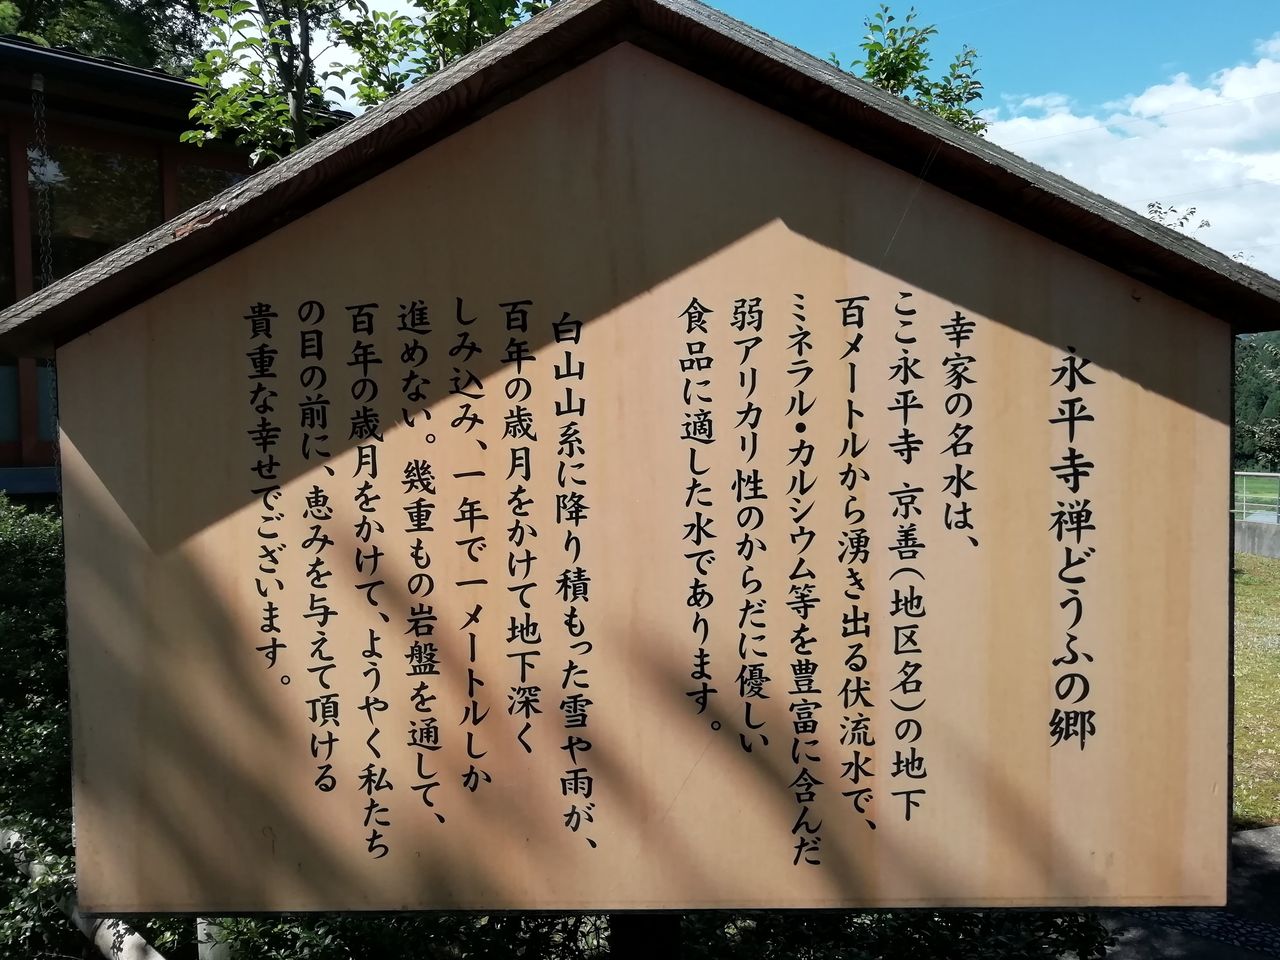 永平寺禅どうふの郷
幸家の名水は、
ここ永平寺 京善(地区名)の地下
百メートルから湧き出る伏流水で、
ミネラル・カルシウム等を豊富に含んだ
弱アリカリ性のからだに優しい
食品に適した水であります。
白山山系に降り積もった雪や雨が、
百年の歳月をかけて地下深く
しみ込み、一年で一メートルしか
進めない。幾重もの岩盤を通して、
百年の歳月をかけて、ようやく私たち
の目の前に、恵みを与えて頂ける
貴重な幸せでございます。